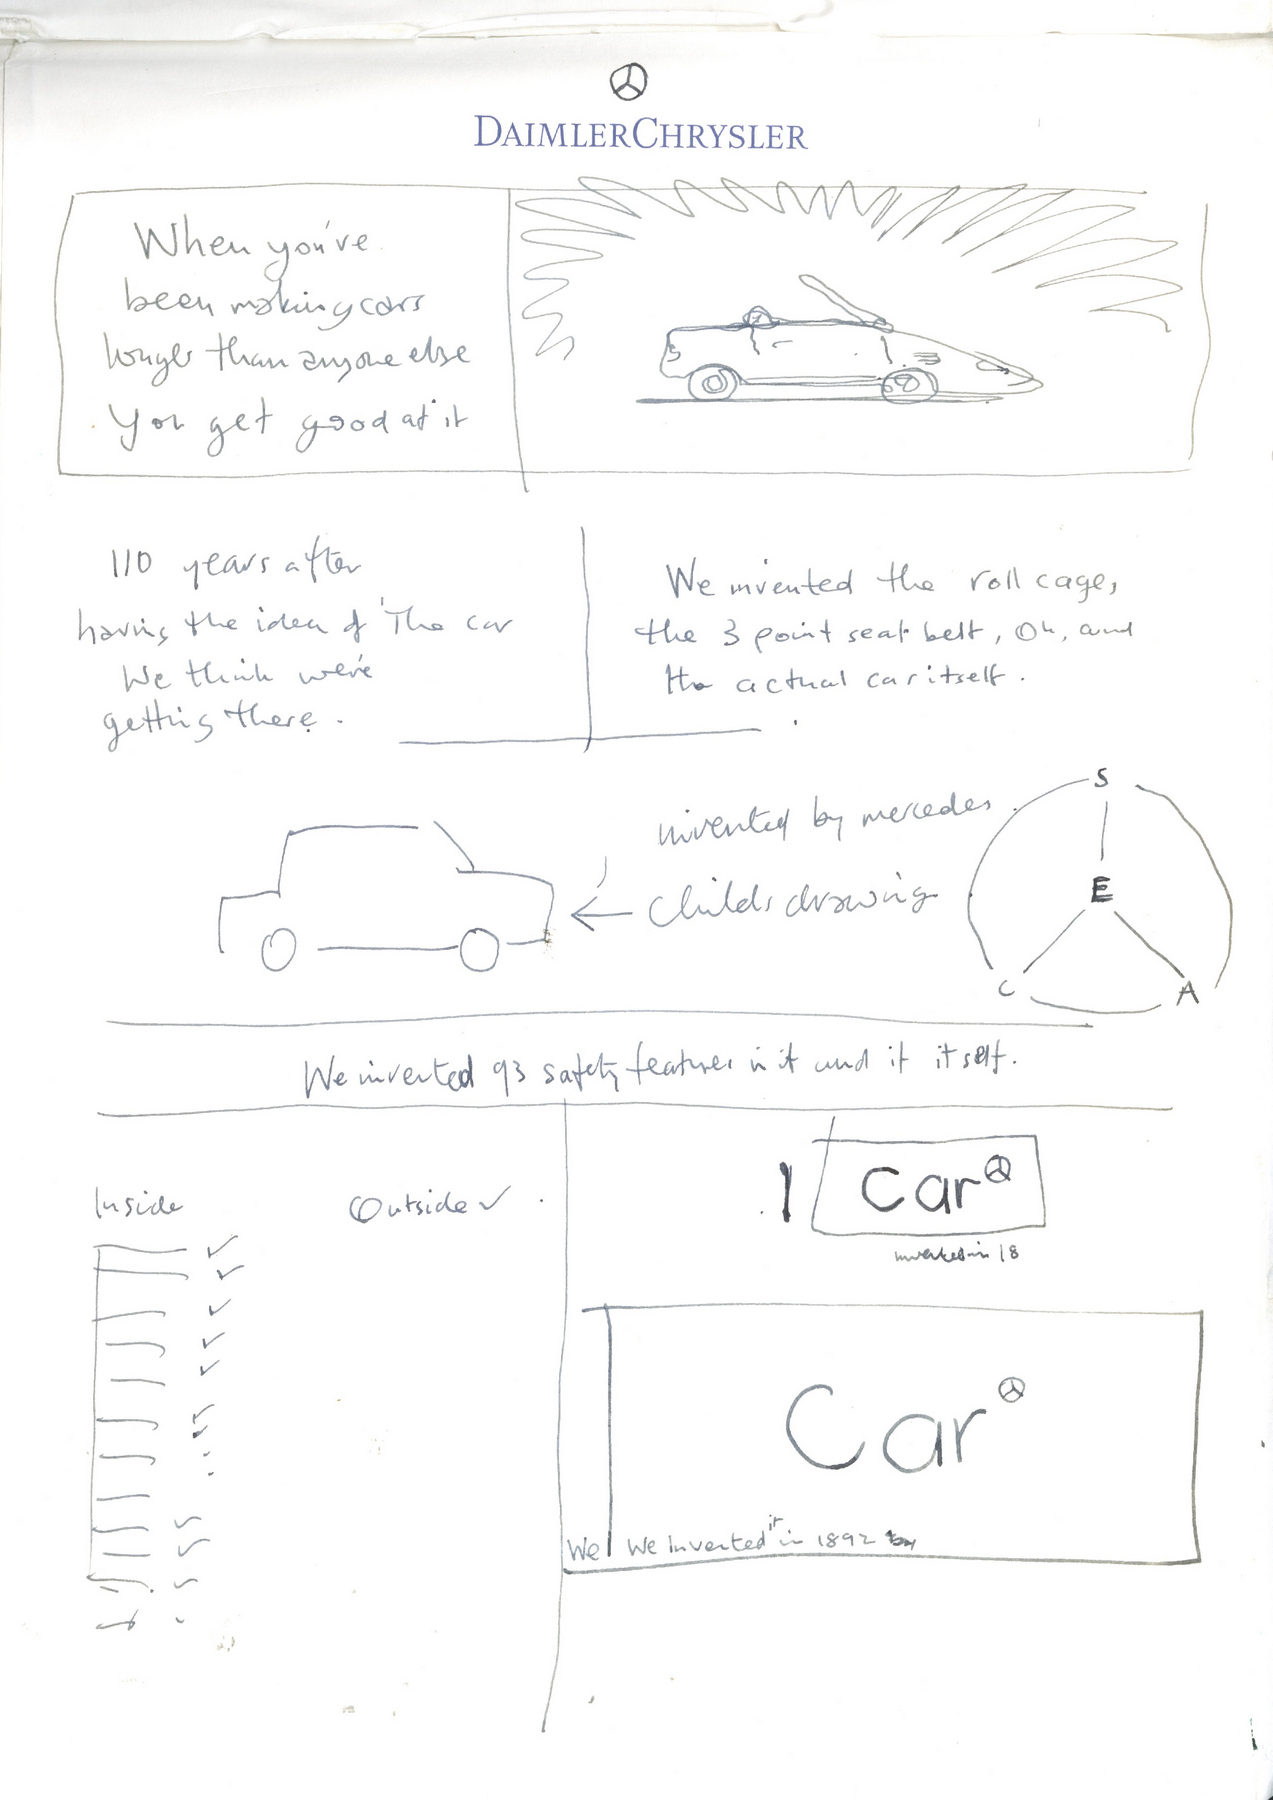 DAIMLERCHRYSLER
When you've
been making cars
longer than anyone else
You get good at it
110 years after
having the idea of 'The car
We think we're
getting there.
We invented the roll cage,
the 3 point seat belt, Oh, and
the actual car itself.
invented by mercedes
Childs drawing
S
E
C A
We invented 93 safety features in it and it itself.
Inside Outside
1 Car
invented in 18
Car
We We Invented it in 1892